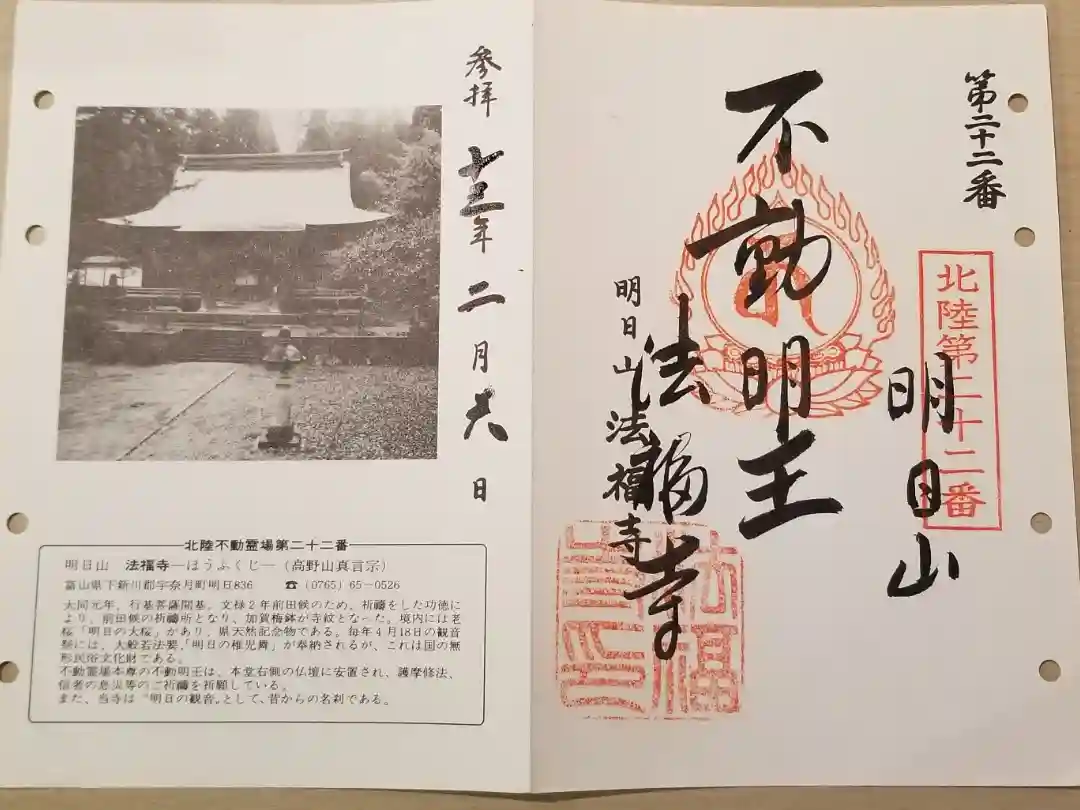 第二十二番
北陸第二十二番
明日山
不動明王
法福寺
明日山 法福寺
参拝 十三年 二月 日
北陸不動霊場第二十二番
明日山 法福寺―ほうふくじ―(高野山真言宗)
富山県下新川郡宇奈月町明日836 ☎(0765)65―0526
大同元年、行基菩薩開基。文禄2年前田候のため、祈禱をした功徳に
より、前田候の祈禱所となり、加賀梅鉢が寺紋となった。境内には老
桜「明日の大桜」があり、県天然記念物である。毎年4月18日の観音
祭には、大般若法要、「明日の稚児舞」が奉納されるが、これは国の無
形民俗文化財である。
不動霊場本尊の不動明王は、本堂右側の仏壇に安置され、護摩修法、
信者の息災等のご祈禱を祈願している。
また、当寺は〝明日の観音〟として、昔からの名刹である。